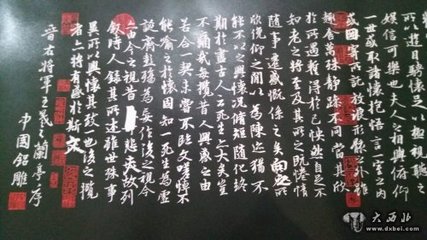 所以遊目騁懷足以極視聽之
娛信可樂也夫人之相與俯仰
一世或取諸懷抱悟言一室之內
或因寄所託放浪形骸之外雖
趣舍萬殊靜躁不同當其欣
於所遇暫得於己快然自足不
知老之將至及其所之既惓情
隨事遷感慨係之矣向之所
欣俛仰之間以為陳迹猶不
能不以之興懷況脩短隨化終
期於盡古人云死生亦大矣豈
不痛哉每攬昔人興感之由
若合一契未嘗不臨文嗟悼不
能喻之於懷固知一死生為虛
誕齊彭殤為妄作後之視今
亦由今之視昔悲夫故列
敘時人錄其所述雖世殊事
異所以興懷其致一也後之攬
者亦將有感於斯文
晉右將軍王羲之蘭亭序
中國銘雕
大西北
www.dxbei.com